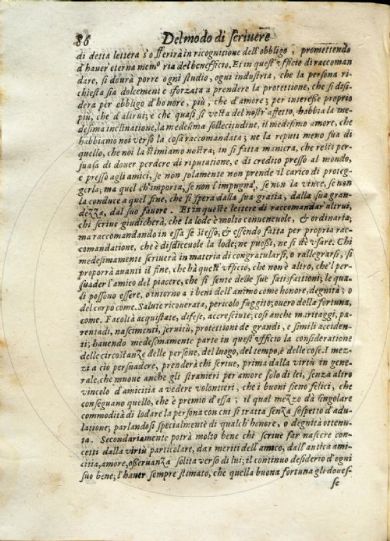 86 Del modo di scriuere
di detta lettera s'offerirà in ricognitione dell'obbligo; promettendo
d'hauer eterna memoria del beneficio. Et in quest'vfficio di raccoman
dare, si dourà porre ogni studio, ogni industria, che la persona ri-
chiesta sia dolcemente e sforzata a prendere la protettione, che si disi-
dera per obbligo d'honore, più, che d'amore; per interesse proprio
più, che d'altrui; e che quasi si vesta del nostr'affetto, habbia la me-
desima inclinatione, la medesima sollecitudine, il medesimo amore, che
habbiamo noi verso la cosa raccomandata; ne la reputi meno sua di
quello, che noi la stimiamo nostra; in si fatta maniera, che resti per-
suasa di douer perdere di riputatione, e di credito presso al mondo,
e presso agli amici, se non solamente non prende il carico di proteg-
gerla, ma quel ch'importa, se non l'impugna, se non la vince, se non
la conduce a quel fine, che si spera dalla sua gratia, dalla sua gran-
dezza, dal suo fauore. Et in queste lettere di raccomandar altrui,
chi scriue giudicherà, che la lode è molto conueneuole, & ordinaria,
ma raccomandando in essa se stesso, & essendo fatta per propria rac-
comandatione, ch'è disdiceuole la lode; ne puossi, ne si de' vsare. Chi
medesimamente scriuerà in materia di congratularsi, o rallegrarsi, si
proporrà auanti il fine, che hà quest'vfficio, che non è altro, che'l per-
suader l'amico del piacere, che si sente delle sue satisfattioni; le qua-
li possono essere, o intorno a i beni dell'animo come honore, degnità; o
del corpo come, Salute ricouerata, pericolo fuggito; ouero della fortuna,
come, Facoltà acquistate, difese, accresciute; così anche maritaggi, pa-
rentadi, nascimenti, seruitù, protettioni de grandi, e simili acciden-
ti; hauendo medesimamente parte in quest'vfficio la consideratione
delle circostanze delle persone, del luogo, del tempo, e delle cose. I mez-
zi a ciò persuadere, prenderà chi scriue, prima dalla virtù in gene-
rale, che muoue anche gli stranieri per amore solo di lei, senza altro
vincolo d'amicitia a vedere volontieri, che i buoni sieno felici, che
conseguano quello, che è premio d'essa; il qual mezzo dà singolare
commodità di lodare la persona con cui si tratta senza sospetto d'adu-
latione, parlandosi specialmente di qualch'honore, o degnità ottenu-
ta. Secondariamente potrà molto bene chi scriue far nascere con-
cetti dalla virtù particolare, da i meriti dell'amico, dall'antica ami-
citia, amore, osseruanza solita verso di lui; il continuo desiderio d'ogni
suo bene; l'hauer sempre stimato, che quella buona fortuna gli doues-
se